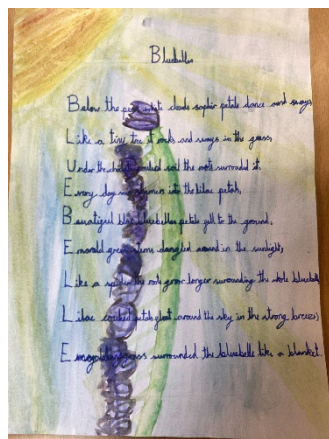 Bluebelles
Below the white clouds saphir petals dance and sways
Like a tiny tree it rocks and sways in the grass,
Under the soil the roots surround it.
Every day into the lilac petals,
Beautiful blue bluebelles petals fall to the ground,
Emerald green stems dangled around in the sunlight,
Like a the roots grow longer surrounding the hole bluebelle
Lilac petals float around the sky in the strong breeze,
E grass surrounded the bluebelle like a blanket.